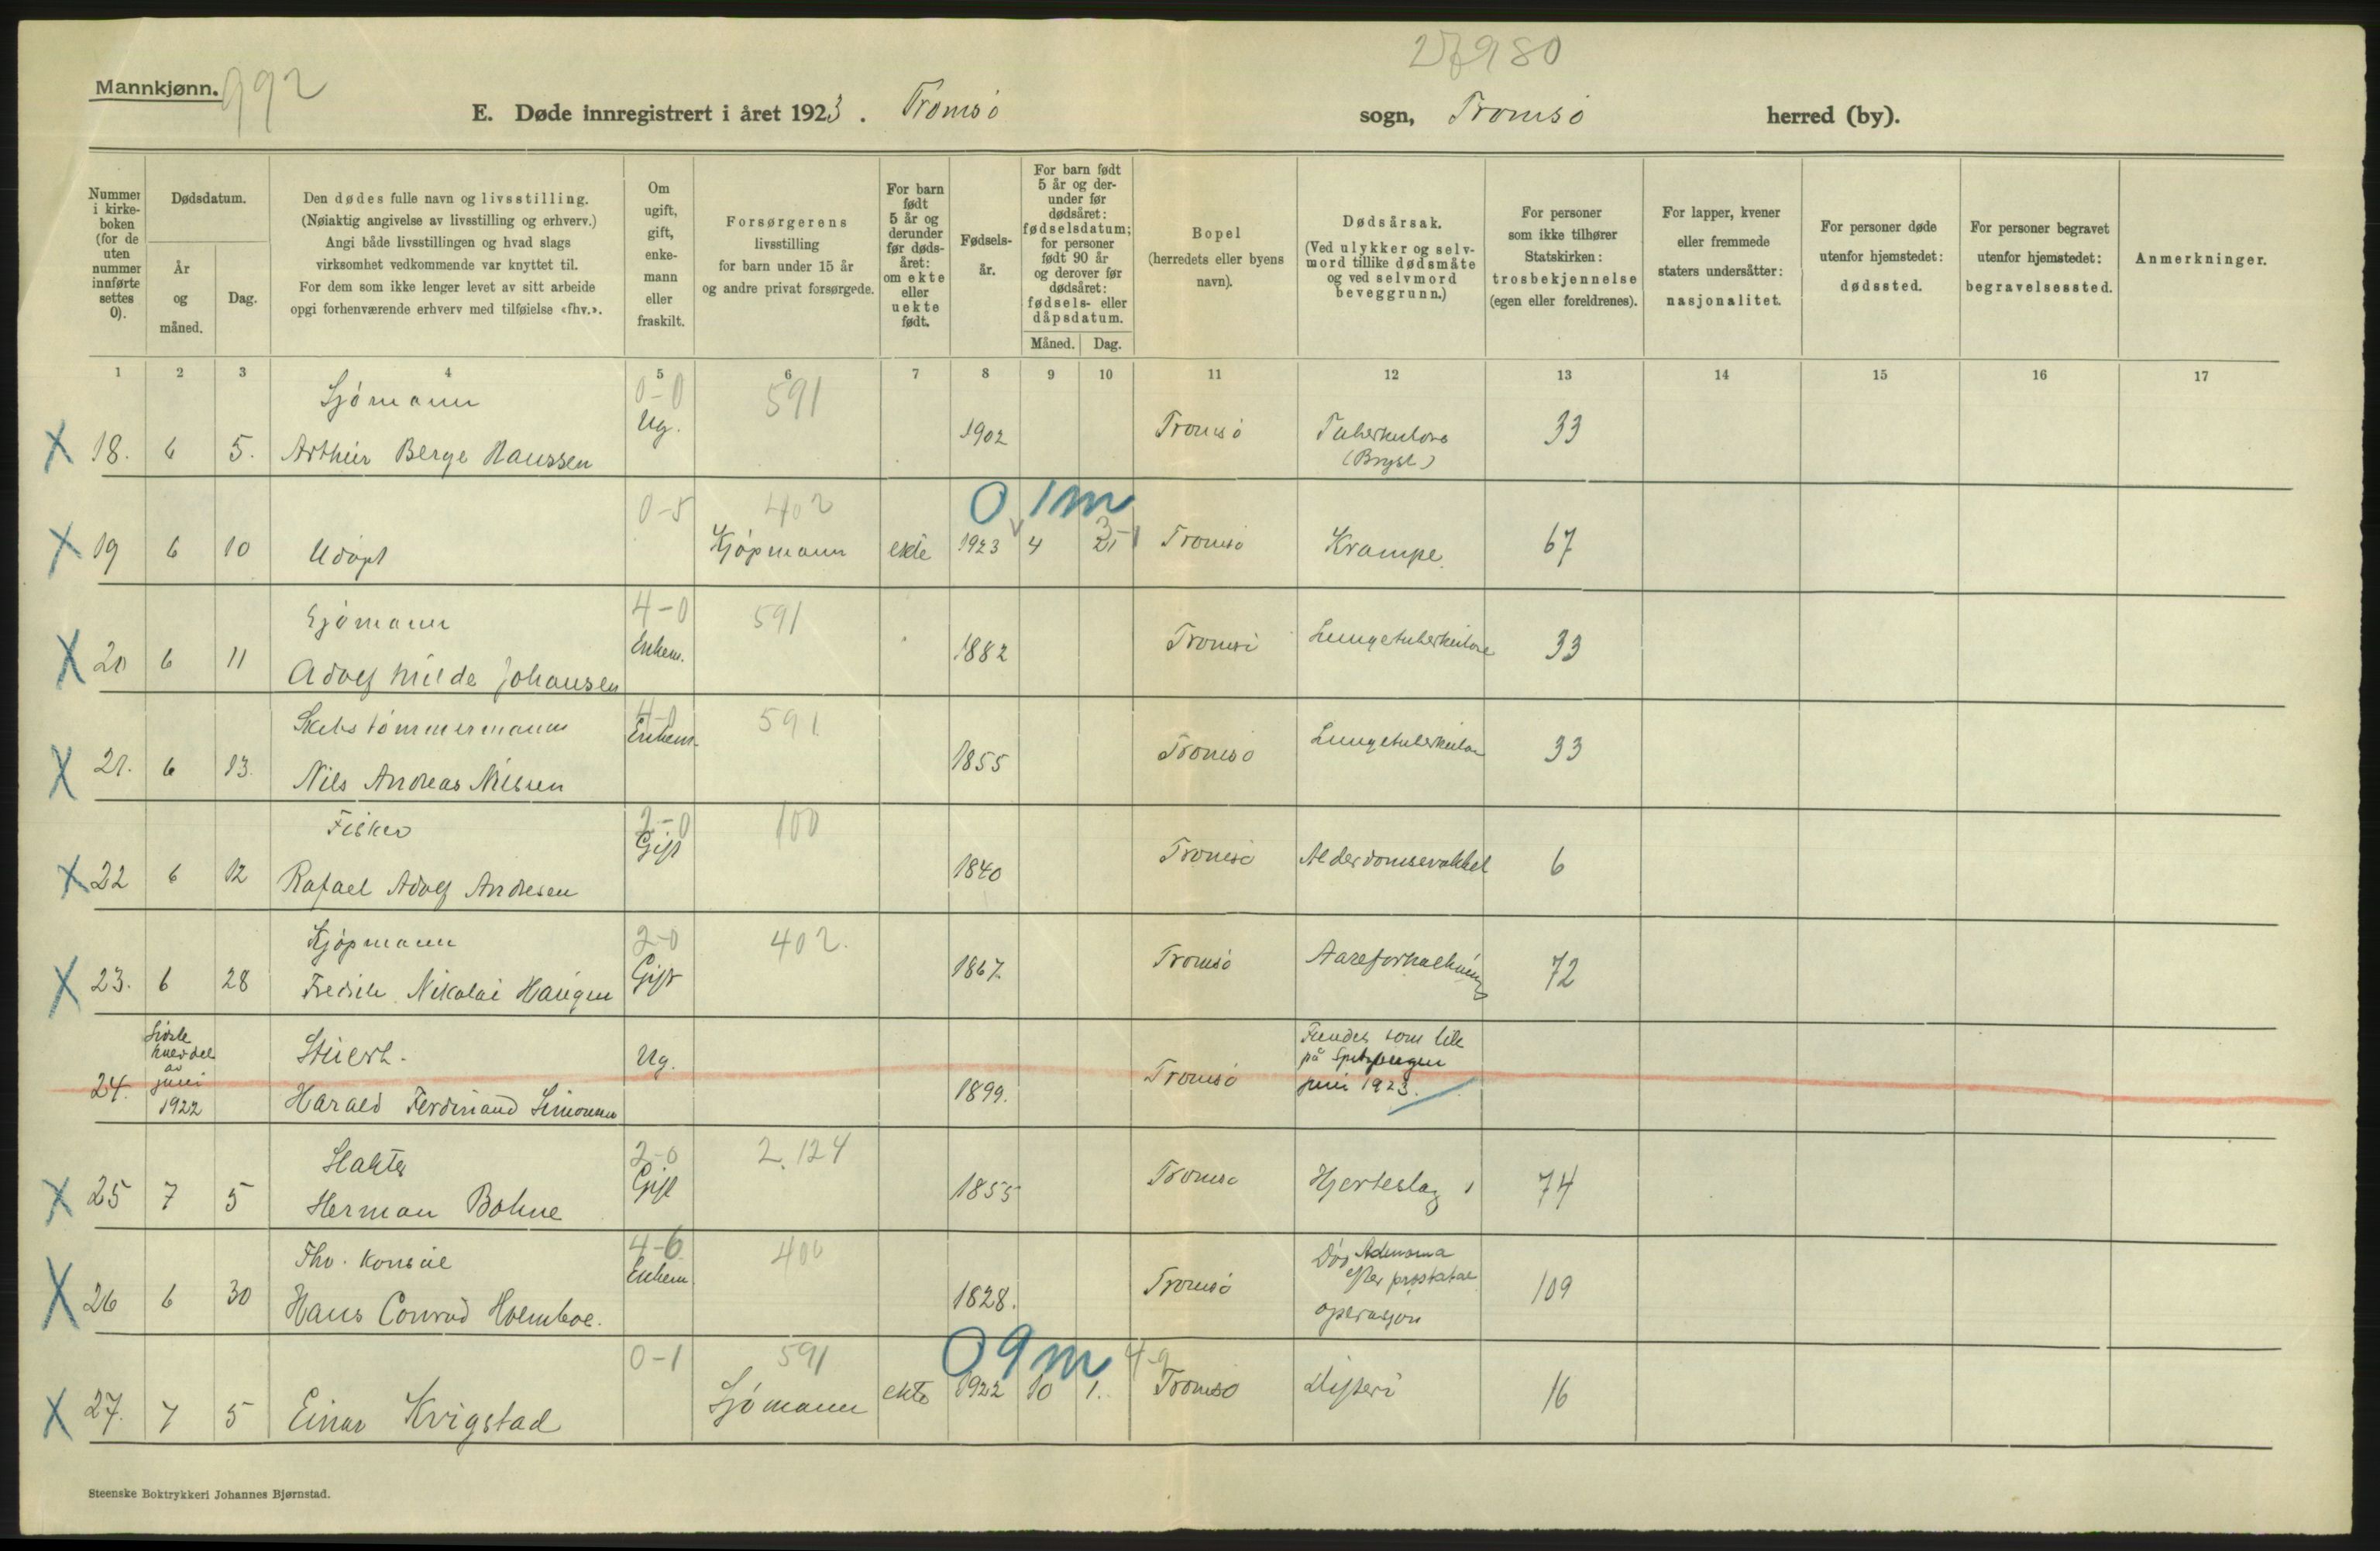 Mannkjønn. 992
27980
E. Døde innregistrert i året 1923. Tromsø sogn, Tromsø herred (by).
Nummer i kirke-boken (for de uten nummer innførte settes 0).
Dødsdatum.
År og måned.
Dag.
Den dødes fulle navn og livsstilling.
(Nøiaktig angivelse av livsstilling og erhverv.)
Angi både livsstillingen og hvad slags
virksomhet vedkommende var knyttet til.
For dem som ikke lenger levet av sitt arbeide
opgi forhenværende erhverv med tilføielse «fhv.».
Om ugift, gift, enke-mann eller fraskilt.
Forsørgerens
livsstilling
for barn under 15 år
og andre privat forsørgede.
For barn født 5 år og derunder før døds-året: om ekte eller uekte født.
Fødsels-år.
For barn født 5 år og der-under før dødsåret: fødselsdatum; for personer født 90 år og derover før dødsåret: fødsels- eller dåpsdatum.
Måned. Dag.
Bopel
(herredets eller byens
navn).
Dødsårsak.
(Ved ulykker og selv-
mord tillike dødsmåte
og ved selvmord
beveggrunn.)
For personer
som ikke tilhører
Statskirken:
trosbekjennelse
(egen eller foreldrenes).
For lapper, kvener
eller fremmede
staters undersåtter:
nasjonalitet.
For personer døde
utenfor hjemstedet:
dødssted.
For personer begravet
utenfor hjemstedet:
begravelsessted.
Anmerkninger.
1 2 3 4 5 6 7 8 9 10 11 12 13 14 15 16 17
Sjømann 0-0 591
X 18. 6 5. Arthur Berge Hanssen Ug. 1902 Tromsø Tuberkulose 33
(Bryst)
0-5 402 0 1m
X 19 6 10 Udøpt Kjøpmann ekte 1923 4 Tromsø Krampe 67
Sjømann 4-0 591
X 20 6 11 Adolf Milde Johansen Enkem. 1882 Tromsø Lungetuberkulose 33
Skibstømmermann 4-0 591
X 21. 6 13. Nils Andreas Nilsen Enkem. 1855 Tromsø Lungetuberkulose 33
Fisker 2-0 100
X 22 6 12 Rafael Adolf Andresen Gift 1840 Tromsø Alderdomssvakhet 6
Kjøpmann 2-0 402.
X 23. 6 28 Fredrik Nikolai Haugen Gift 1867. Tromsø Aareforkalkning 72
Sidste halvdel av juni 1922
Stuert.
24. Harald Ferdinand Simonsen Ug. 1899. Tromsø Fundet som lik
på Spitsbergen
juni 1923.
Slakter 2-0 2.124
X 25 7 5 Herman Bohne Gift 1855 Tromsø Hjerteslag 74
Fhv. konsul 4-6 400
X 26 6 30 Hans Conrad Holmboe. Enkem 1828. Tromsø Død Adenoma
efter prostatae
operasjon 109
0-1 591 0 9m 4-9
X 27. 7 5 Einar Kvigstad Sjømann ekte 1922 10 1. Tromsø Difteri 16
Steenske Boktrykkeri Johannes Bjørnstad.